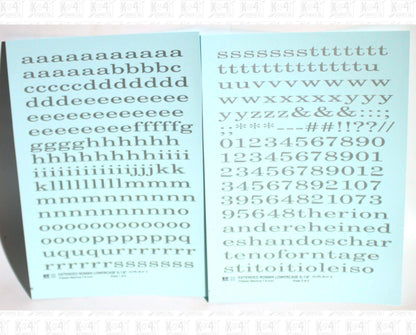 aaaaaaaaaaaa
aaaaaabbbbc
cccccddddddd
dddeeeeeeeee
eeeeeeeeeeee
eeeeeeeefffffg
ggggghhhhhh
hhhhhhhiiiii
iiiiiiiiiiiijjjkk
kllllllllllmmm
mmmnnnnnnn
nnnnnnnnnno
oooooooooooo
oooopppppppq
quququrrrrrr
rrrrrrsssssss
EXTENDED ROMAN LOWERCASE
sssssssstttttttt
tttttttttttttttu
uuvvvvwwww
wwxxxxxyyyy
yyyzzzz&&&:::;
;;***---##!!??//
012345678901
234567890123
456789012
345678921
3456789043
95648therion
andereheined
eshandoschar
tenofforntage
stitoitioleiso
EXTENDED ROMAN LOWERCASE